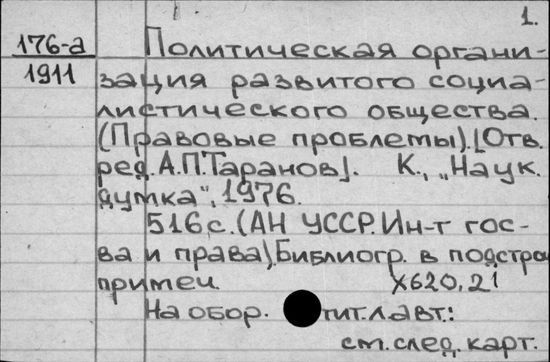 1.
176-а Политическая органи-
1911 зация развитого социа-
листического общества.
(Правовые проблемы). [Отв.
ред. А.П.Таранов]. К., „Наук.
думка", 1976.
516 с. (АН УССР. Ин-т гос-
ва и права). Библиогр. в подстроч
примеч. X620,21
На обор. тит. л авт.:
см. след. карт.